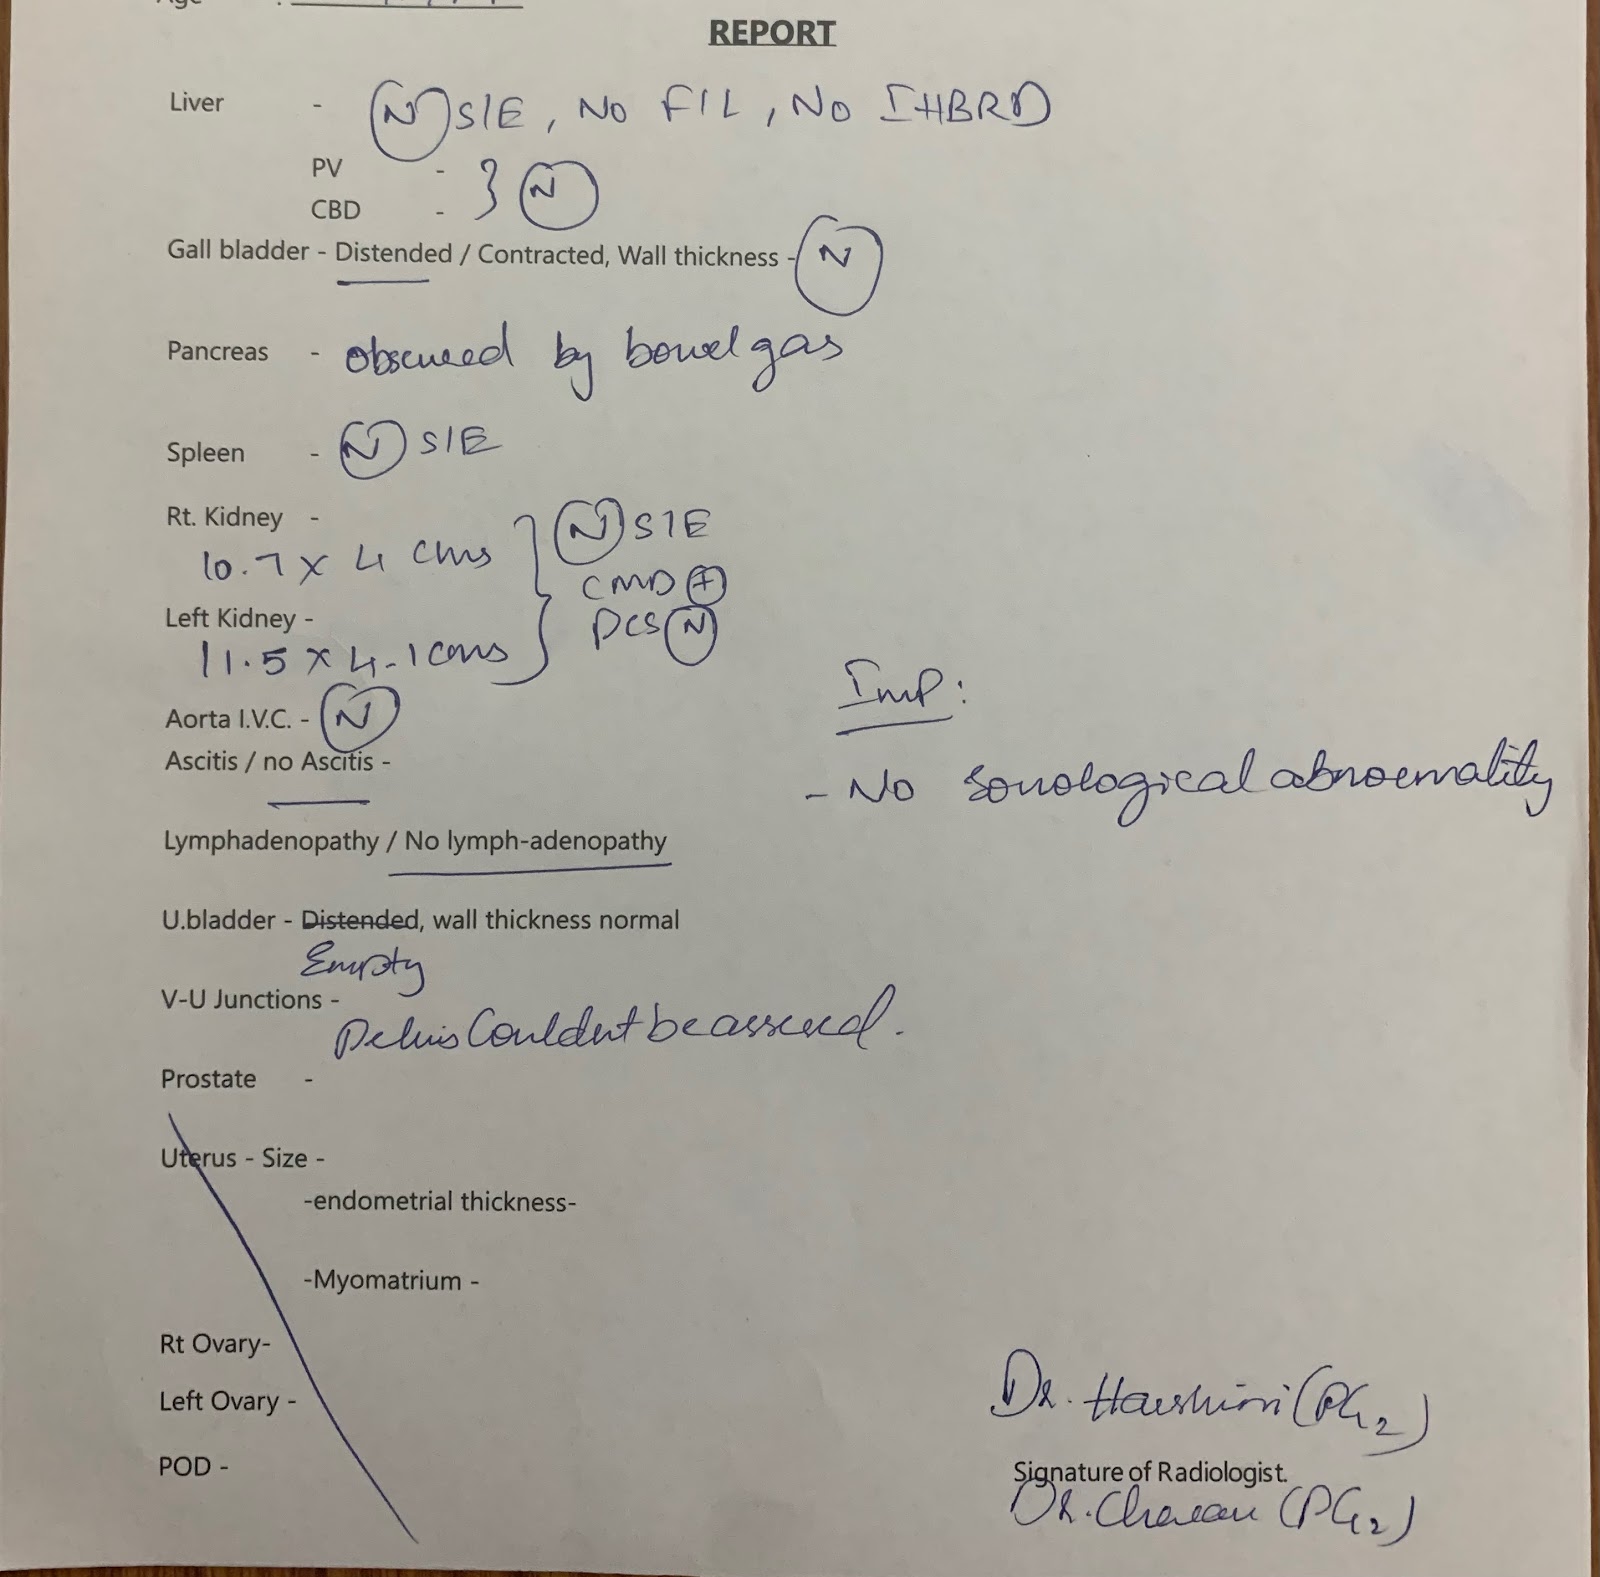 REPORT
Liver - (N) S/E, No F/L, No IHBRD
PV -
CBD - } (N)
Gall bladder - Distended / Contracted, Wall thickness - (N)
Pancreas - obscured by bowel gas
Spleen - (N) S/E
Rt. Kidney -
10.7 x 4 cms } (N) S/E
CMD (+)
Left Kidney - PCS (N)
11.5 x 4.1 cms
Aorta I.V.C. - (N)
Imp:
Ascitis / no Ascitis -
- No sonological abnormality
Lymphadenopathy / No lymph-adenopathy
U.bladder - Distended, wall thickness normal
Empty
V-U Junctions -
Pelvis Couldn't be assessed.
Prostate -
Uterus - Size -
-endometrial thickness-
-Myomatrium -
Rt Ovary-
Left Ovary -
Dr. Harshini (PG2)
POD -
Signature of Radiologist.
Dr. (PG2)